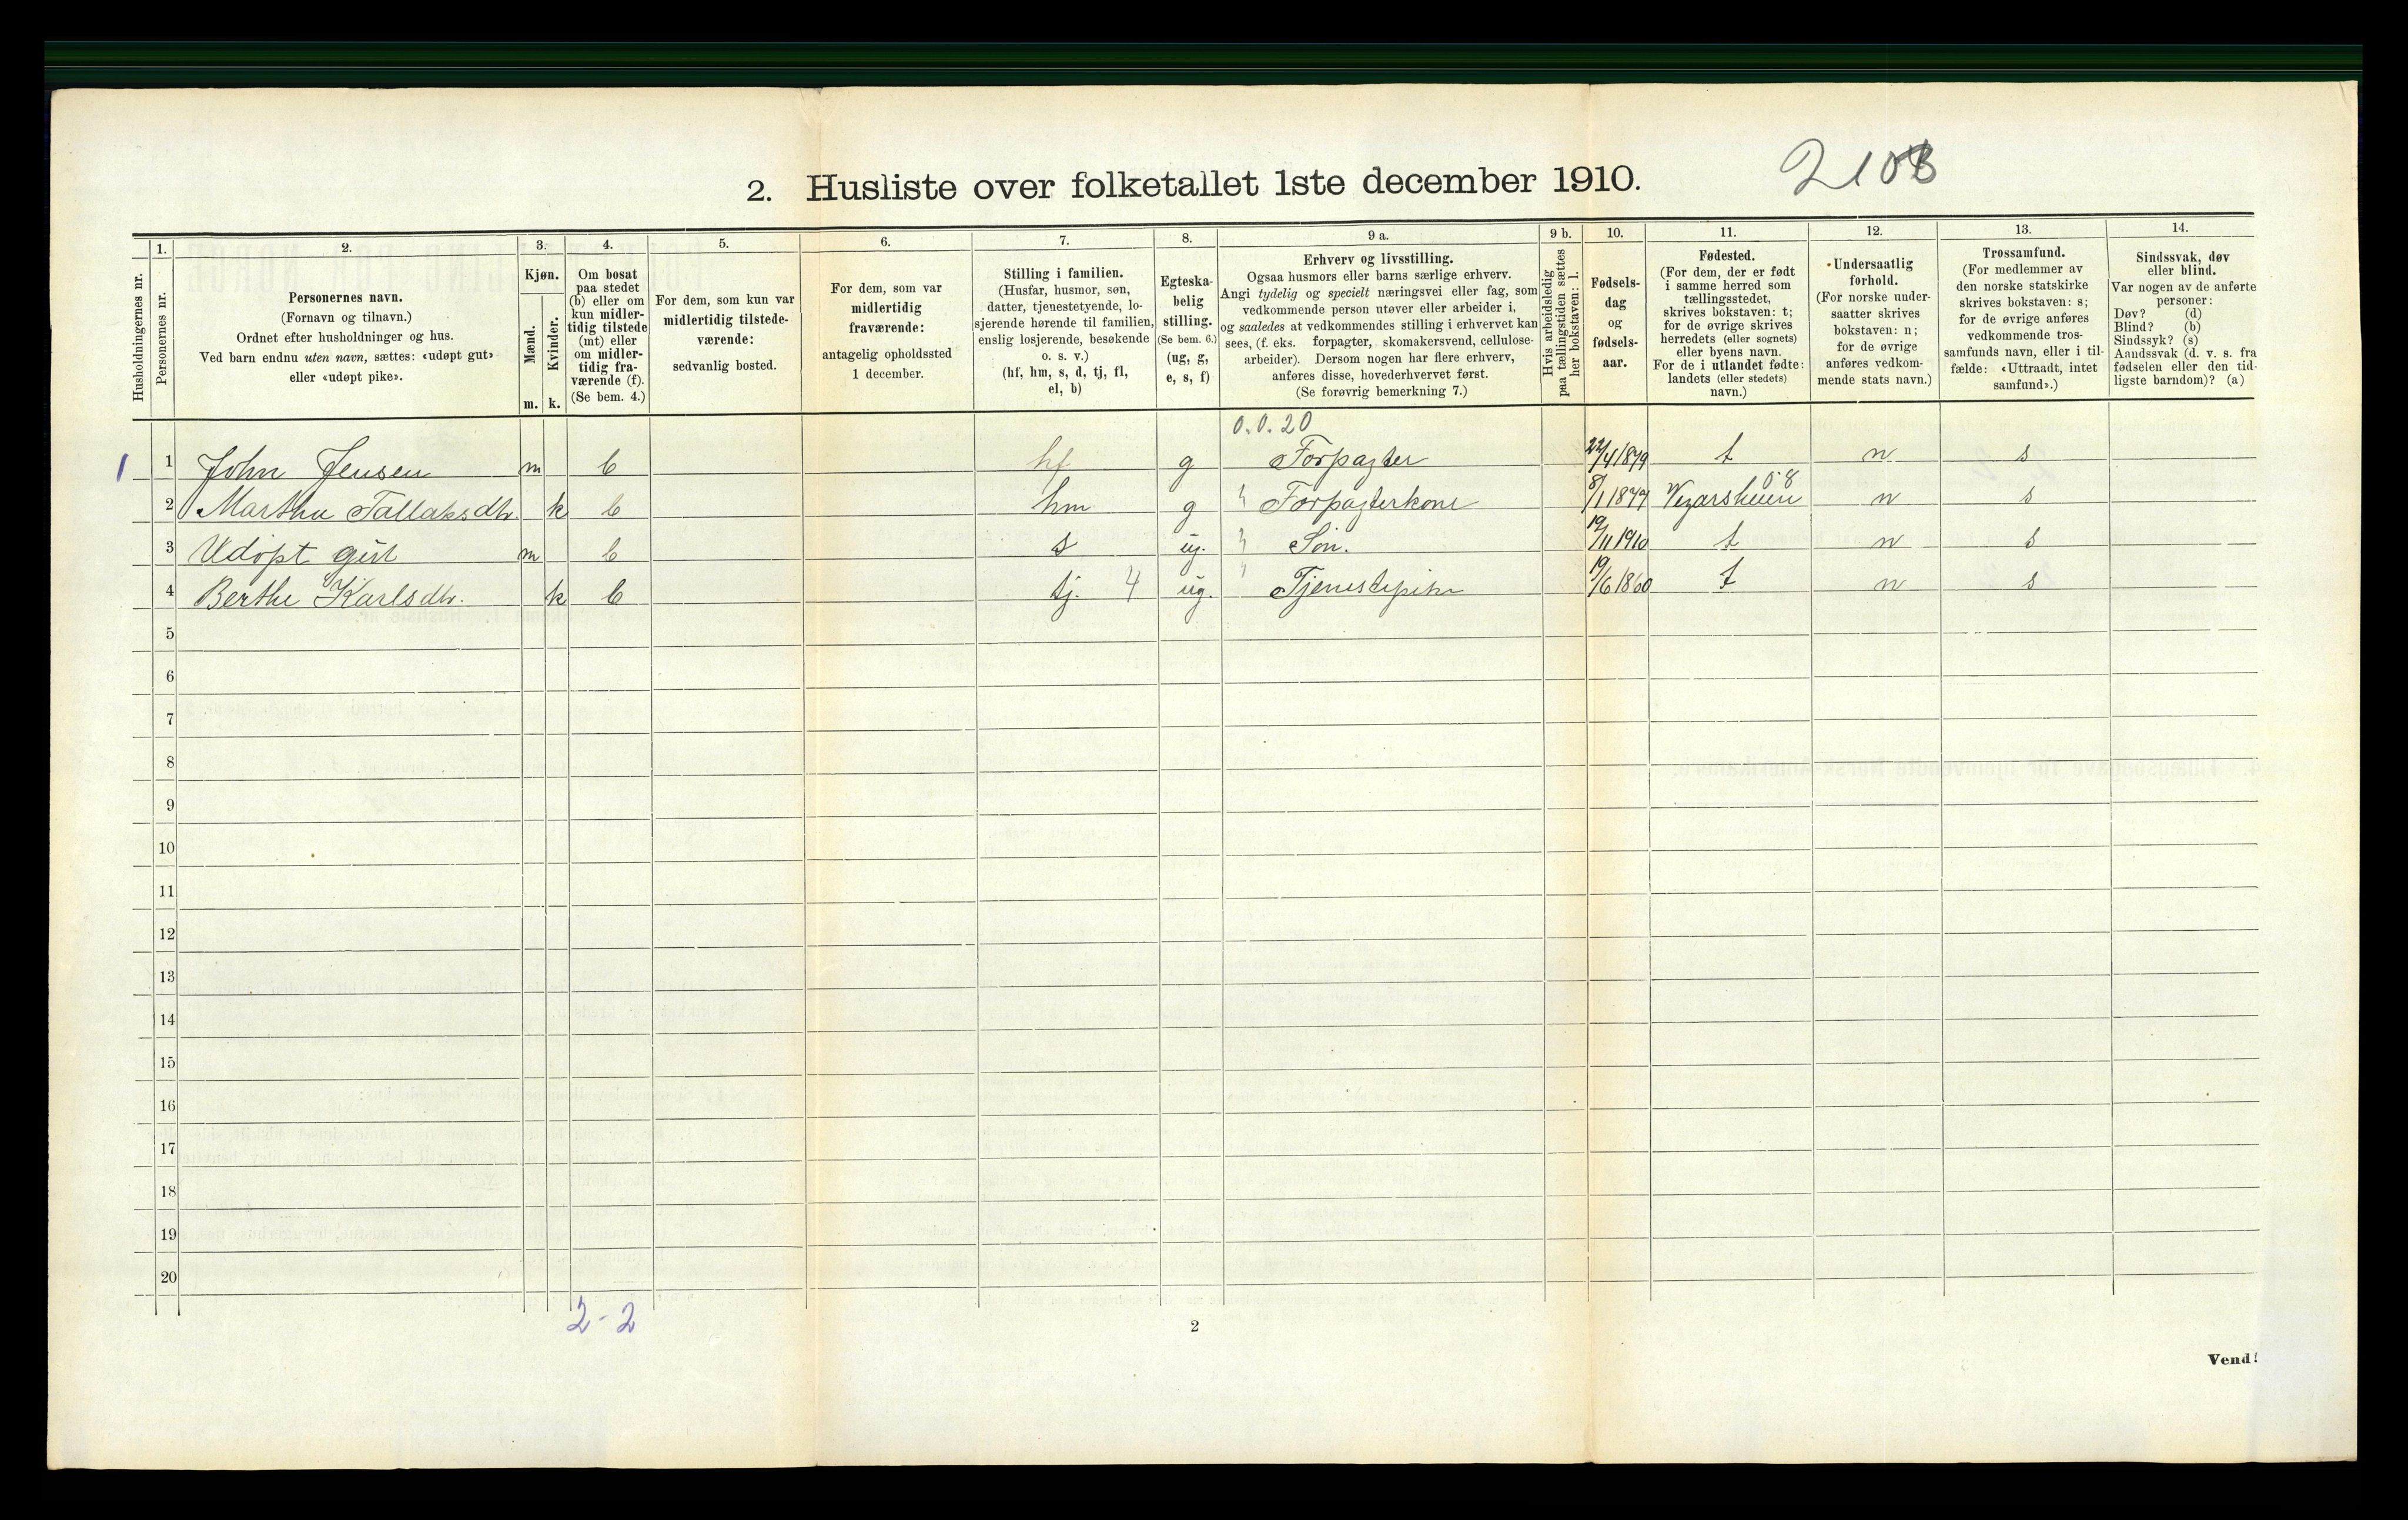 2. Husliste over folketallet 1ste december 1910.
2108
1. 2. 3. 4. 5. 6. 7. 8. 9 a. 9 b. 10. 11. 12. 13. 14.
Husholdningernes nr.
Personernes nr.
Personernes navn.
(Fornavn og tilnavn.)
Ordnet efter husholdninger og hus.
Ved barn endnu uten navn, sættes: «udøpt gut»
eller «udøpt pike».
Kjøn.
Mænd.
Kvinder.
m. k.
Om bosat
paa stedet
(b) eller om
kun midler-
tidig tilstede
(mt) eller
om midler-
tidig fra-
værende (f).
(Se bem. 4.)
For dem, som kun var
midlertidig tilstede-
værende:
sedvanlig bosted.
For dem, som var
midlertidig
fraværende:
antagelig opholdssted
1 december.
Stilling i familien.
(Husfar, husmor, søn,
datter, tjenestetyende, lo-
sjerende hørende til familien,
enslig losjerende, besøkende
o. s. v.)
(hf, hm, s, d, tj, fl,
el, b)
Egteska-
belig
stilling.
(Se bem. 6.)
(ug, g,
e, s, f)
Erhverv og livsstilling.
Ogsaa husmors eller barns særlige erhverv.
Angi tydelig og specielt næringsvei eller fag, som
vedkommende person utøver eller arbeider i,
og saaledes at vedkommendes stilling i erhvervet kan
sees, (f. eks. forpagter, skomakersvend, cellulose-
arbeider). Dersom nogen har flere erhverv,
anføres disse, hovederhvervet først.
(Se forøvrig bemerkning 7.)
Hvis arbeidsledig
paa tællingstiden sættes
her bokstaven: l.
Fødsels-
dag
og
fødsels-
aar.
Fødested.
(For dem, der er født
i samme herred som
tællingsstedet,
skrives bokstaven: t;
for de øvrige skrives
herredets (eller sognets)
eller byens navn.
For de i utlandet fødte:
landets (eller stedets)
navn.)
Undersaatlig
forhold.
(For norske under-
saatter skrives
bokstaven: n;
for de øvrige
anføres vedkom-
mende stats navn.)
Trossamfund.
(For medlemmer av
den norske statskirke
skrives bokstaven: s;
for de øvrige anføres
vedkommende tros-
samfunds navn, eller i til-
fælde: «Uttraadt, intet
samfund».)
Sindssvak, døv
eller blind.
Var nogen av de anførte
personer:
Døv? (d)
Blind? (b)
Sindssyk? (s)
Aandssvak (d. v. s. fra
fødselen eller den tid-
ligste barndom)? (a)
0.0.20
1 1 John Jensen m b hf g Forpagter 22/4 1879 t n s
08
2 Martha Tallaksdtr. k b hm g Forpagterkone 8/1 1877 Vegarsheien n s
3 Udøpt gut m b s ug. Søn. 19/11 1910 t n s
4 Berthe Karlsdtr. k b tj. 4 ug. Tjenestepike 19/6 1860 t n s
5
6
7
8
9
10
11
12
13
14
15
16
17
18
19
20
2-2
2
Vend!